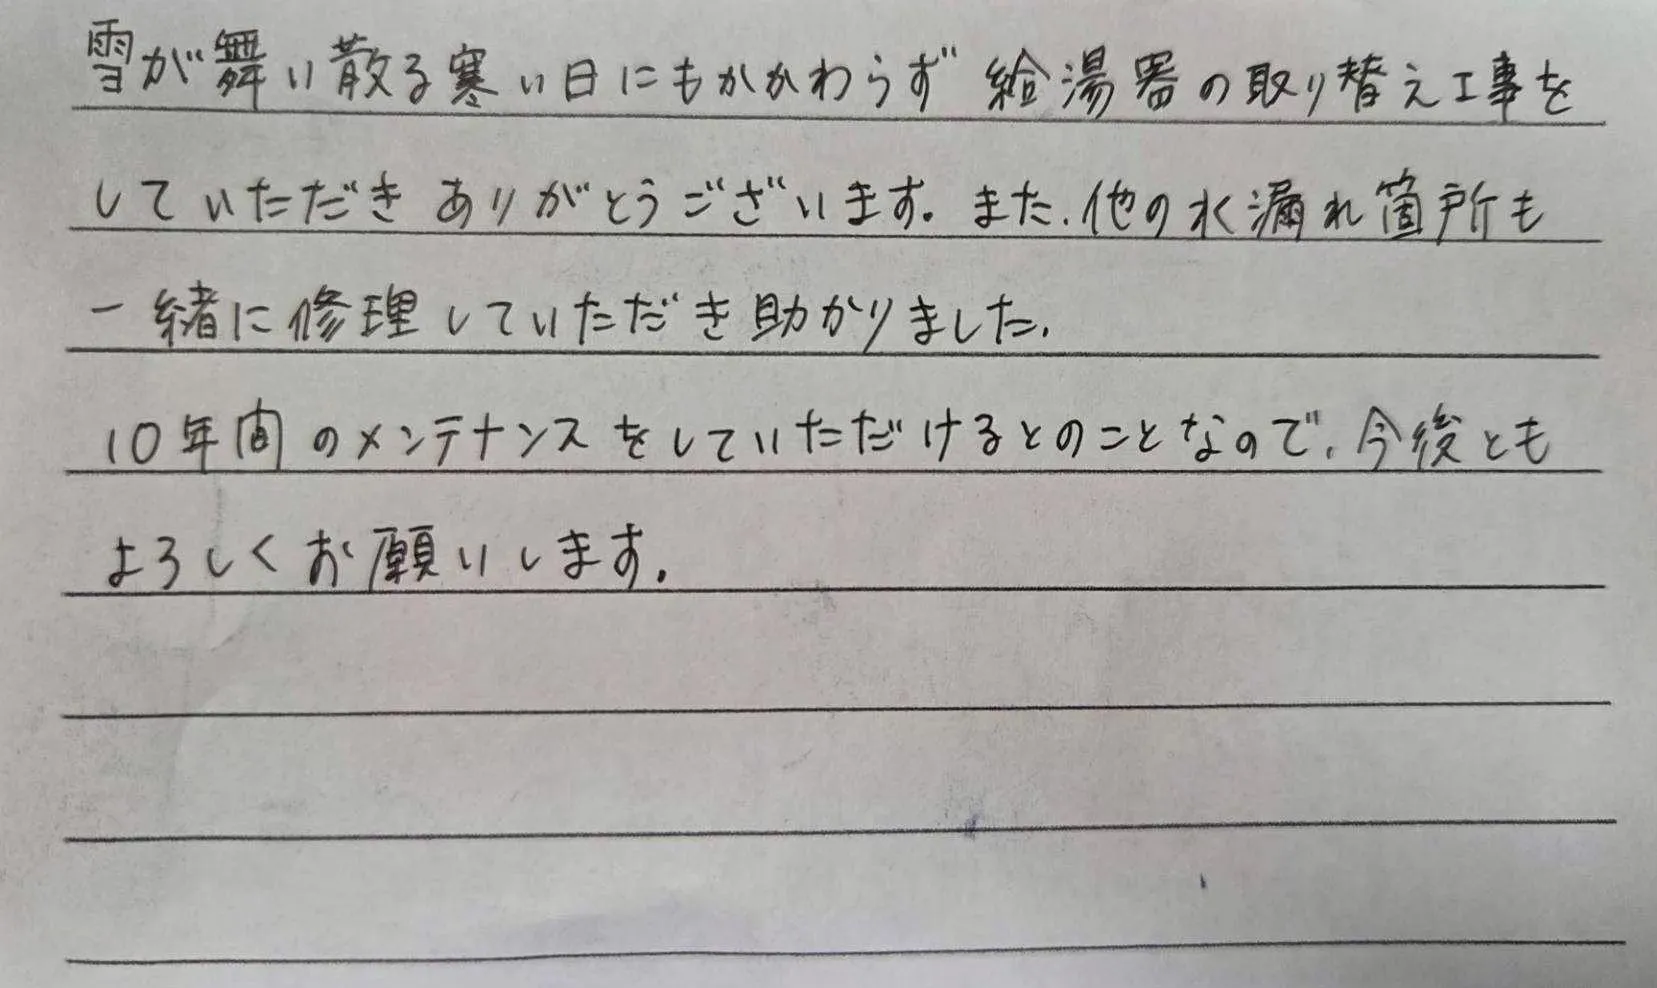 雪が舞い散る寒い日にもかかわらず給湯器の取り替え工事を
していただきありがとうございます。また、他の水漏れ箇所も
一緒に修理していただき助かりました。
10年間のメンテナンスをしていただけるとのことなので、今後とも
よろしくお願いします。